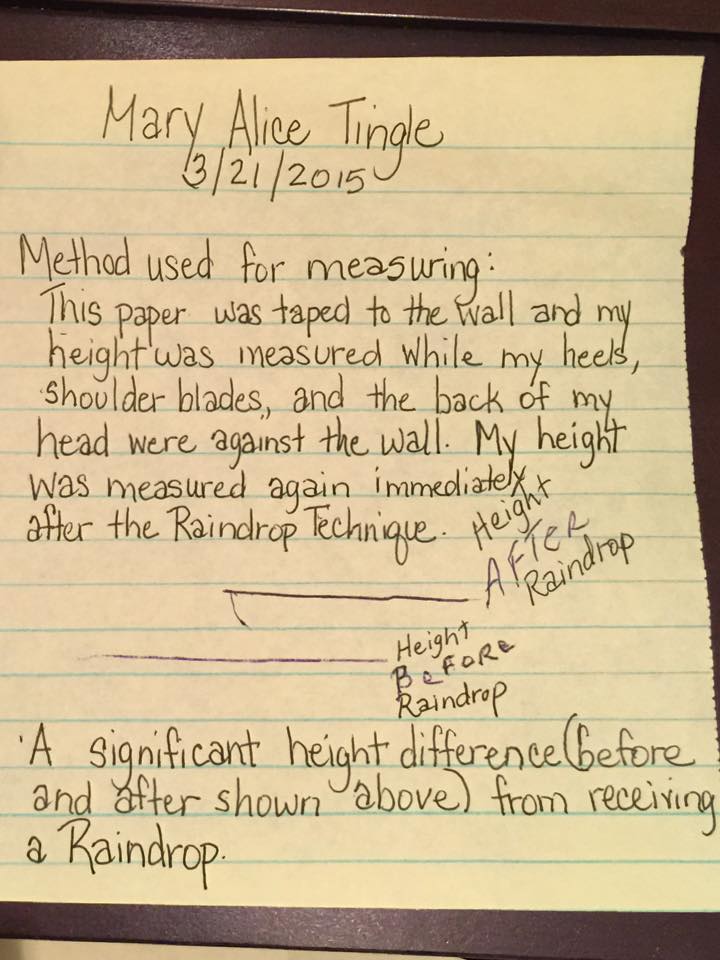 Mary Alice Tingle
3/21/2015
Method used for measuring:
This paper was taped to the wall and my
height was measured while my heels,
shoulder blades, and the back of my
head were against the wall. My height
was measured again immediately
after the Raindrop Technique.
Height
AFTER
Raindrop
Height
BeFORe
Raindrop
A significant height difference (before
and after shown above) from receiving
a Raindrop.